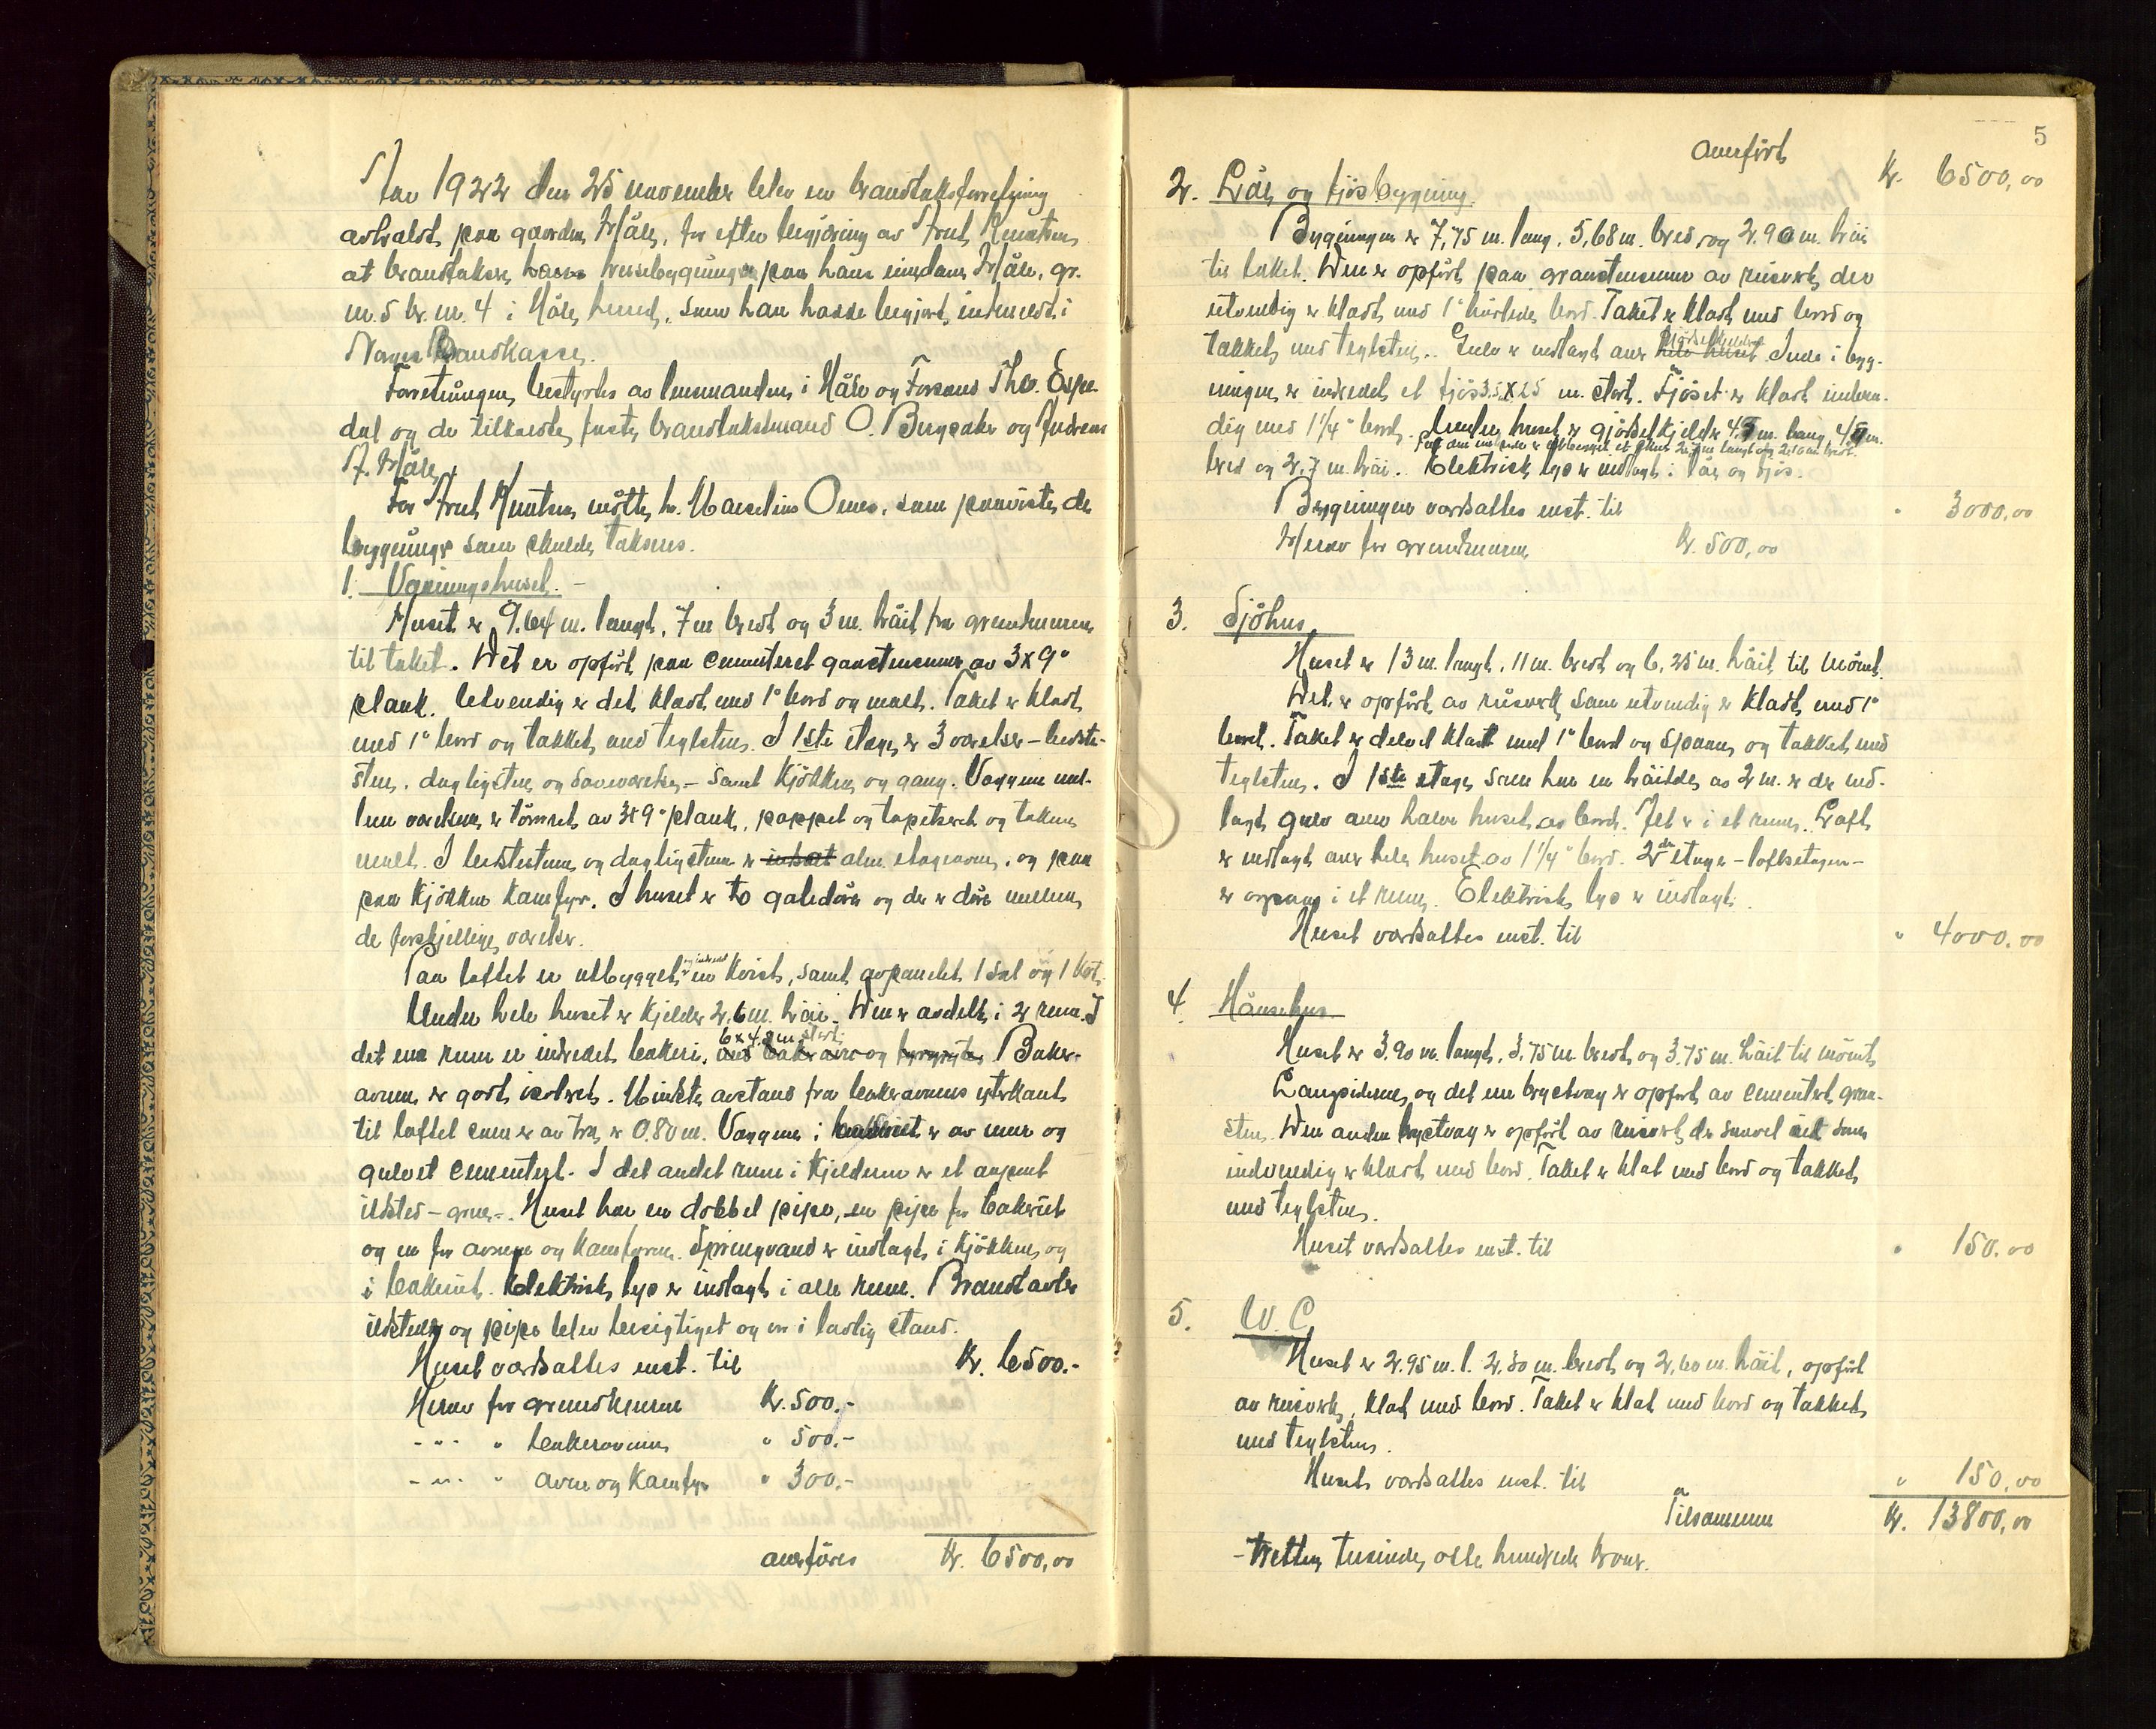 Aar 1922 den 25 november blev en brandtaksforretning
avholdt paa gaarden Håle, for efter begjæring av Knut Knutsen
at brandtaksere husebygninger paa hans eiendom Håle, gr.
nr. 5 br. nr. 4 i Håle herred, som han hadde begjært indmeldt i
Norges Brandkasse.
Forretningen bestyrtes av lensmanden i Håle og Forsand Tho. Espe-
dal og de tilkaldte faste brandtakstmænd O. Bergsaker og Andreas
A. Håle.
For Knut Knutsen møtte hr. Marselius Omes, som paaviste de
bygninger som skulde takseres.
1. Vaaningshuset. -
Huset er 9,64 m. langt, 7 m bredt og 3 m. høit fra grundmuren
til taket. Det er opført paa cementeret graastensmur av 3 x 9"
plank. Utvendig er det klædt med 1" bord og malt. Taket er klædt
med 1" bord og tækket med teglsten. I 1ste etage er 3 værelser - bedste-
stue, dagligstue og soveværelse - samt kjøkken og gang. Væggene mel-
lem værelsene er tømret av 3x9" plank, pappet og tapetseret og taket
malt. I bedstestuen og dagligstuen er indsat alm. etageovner, og paa
paa kjøkken komfyr. I huset er to gatedører og der er dører mellem
de forskjellige værelser.
Paa loftet er utbygget og indredet en kvist, samt avpanelet 1 sal og 1 kot.
Under hele huset er kjelder 2,6 m. høi. Den er avdelt i 2 rum. I
det ene rum er indredet bakeri, 6 x 4.8 m stort. med baker ovn og Baker-
ovnen er godt isoleret. Mindste avstand fra bakerovnens ytterkant
til loftet som er av træ er 0.80 m. Væggene i bakeriet er av mur og
gulvet cementert. I det andet rum i kjelderen er et aapent
ildsted - grue -. Huset har en dobbel pipe, en pipe for bakeriet
og en for ovnene og komfyren. Springvand er indlagt i kjøkken og
i bakeriet. Elektrisk lys er indlagt i alle rum. Brandtavler
ildsteder og pipe blev besigtiget og er i lovlig stand.
Huset værdsattes enst. til Kr. 6500.-
Herav for grundmuren Kr. 500.-
- " - " bakerovnen " 500.-
- " - " ovne og komfyr " 300.-
overføres Kr. 6500,00
5
overført Kr. 6500,00
2. Løe og fjøsbygning.
Bygningen er 7,75 m. lang, 5,68 m. bred og 2.90 m. høi
til taket. Den er opført paa graastensmur av reisverk der
utvendig er klædt med 1" høvlede bord. Taket er klædt med bord og
tækket med teglsten. Gulv er indlagt over gjødselkjelder hele huset. Inde i byg-
ningen er indredet et fjøs 3.5 x 2.5 m. stort. Fjøset er klædt inden-
dig med 1 1/4" bord. Under huset er gjødselkjelder 4,5 m. lang, 4,5 m.
Paa den ene side er tilbygget et skur 2.7 m langt og 2.10 m bredt.
bred og 2,7 m. høi. Elektrisk lys er indlagt i løe og fjøs.
Bygningen værdsattes enst. til " 3000,00
Herav for grundmuren Kr. 500,00
3. Sjöhus
Huset er 13 m. langt, 11 m. bredt og 6,25 m. høit til mønet.
Det er opført av reisverk som utvendig er klædt med 1"
bord. Taket er delvist klædt med 1" bord og spaan, og tækket med
teglsten. I 1ste etage som har en høide av 2 m. er der ind-
lagt gulv over halve huset av bord. Alt er i et rum. Loft
er indlagt over hele huset av 1 1/4" bord. 2den etage - loftsetagen -
er ogsaa i et rum. Elektrisk lys er indlagt.
Huset værdsattes enst. til " 4000,00
4. Hönsehus.
Huset er 3,90 m. langt, 3,75 m. bredt og 3.75 m. høit til mønet
Langsiderne og det ene brystvæg er opført av cementert graa-
sten. Den anden brystvæg er opført av reisverk der saavel ut som
indvendig er klædt med bord. Taket er klæt med bord og tækket
med teglsten.
Huset værdsattes enst. til " 150.00
5. W. C.
Huset er 2.95 m. l. 2,30 m. bredt og 2,60 m. høit, opført
av reisverk, klæt med bord. Taket er klæt med bord og tækket
med teglsten.
Huset værdsattes enst. til " 150,00
Tilsammen Kr. 13800,00
- Tretten tusinde, otte hundrede kroner.